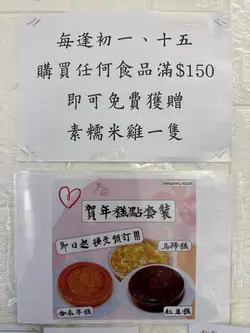 每逢初一、十五
購買任何食品滿$150
即可免費獲贈
素糯米雞一隻
賀年糕點套裝
即日起 接受預訂!!!
馬蹄糕
金瓜年糕
紅豆糕